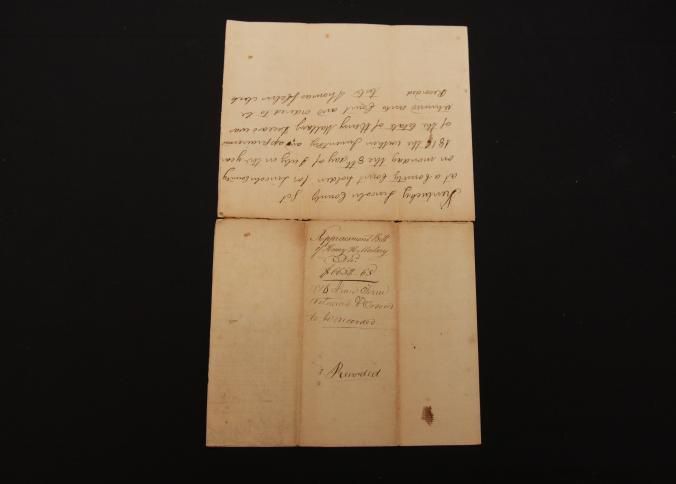 Kentucky Lincoln County Sct
at a County Court holden for Lincoln County
on monday the 8th day of July in the year
181 the within Inventory and appraisement
of the Estate of Henry Mallory Deceasd was
returned into Court and ordered to be
Recorded Att. Thomas Helm Clerk
Appraisement Bill
of Henry H. Mallory
Decd.
$
1816 June Term
returned & Ordered
to be recorded
Recorded